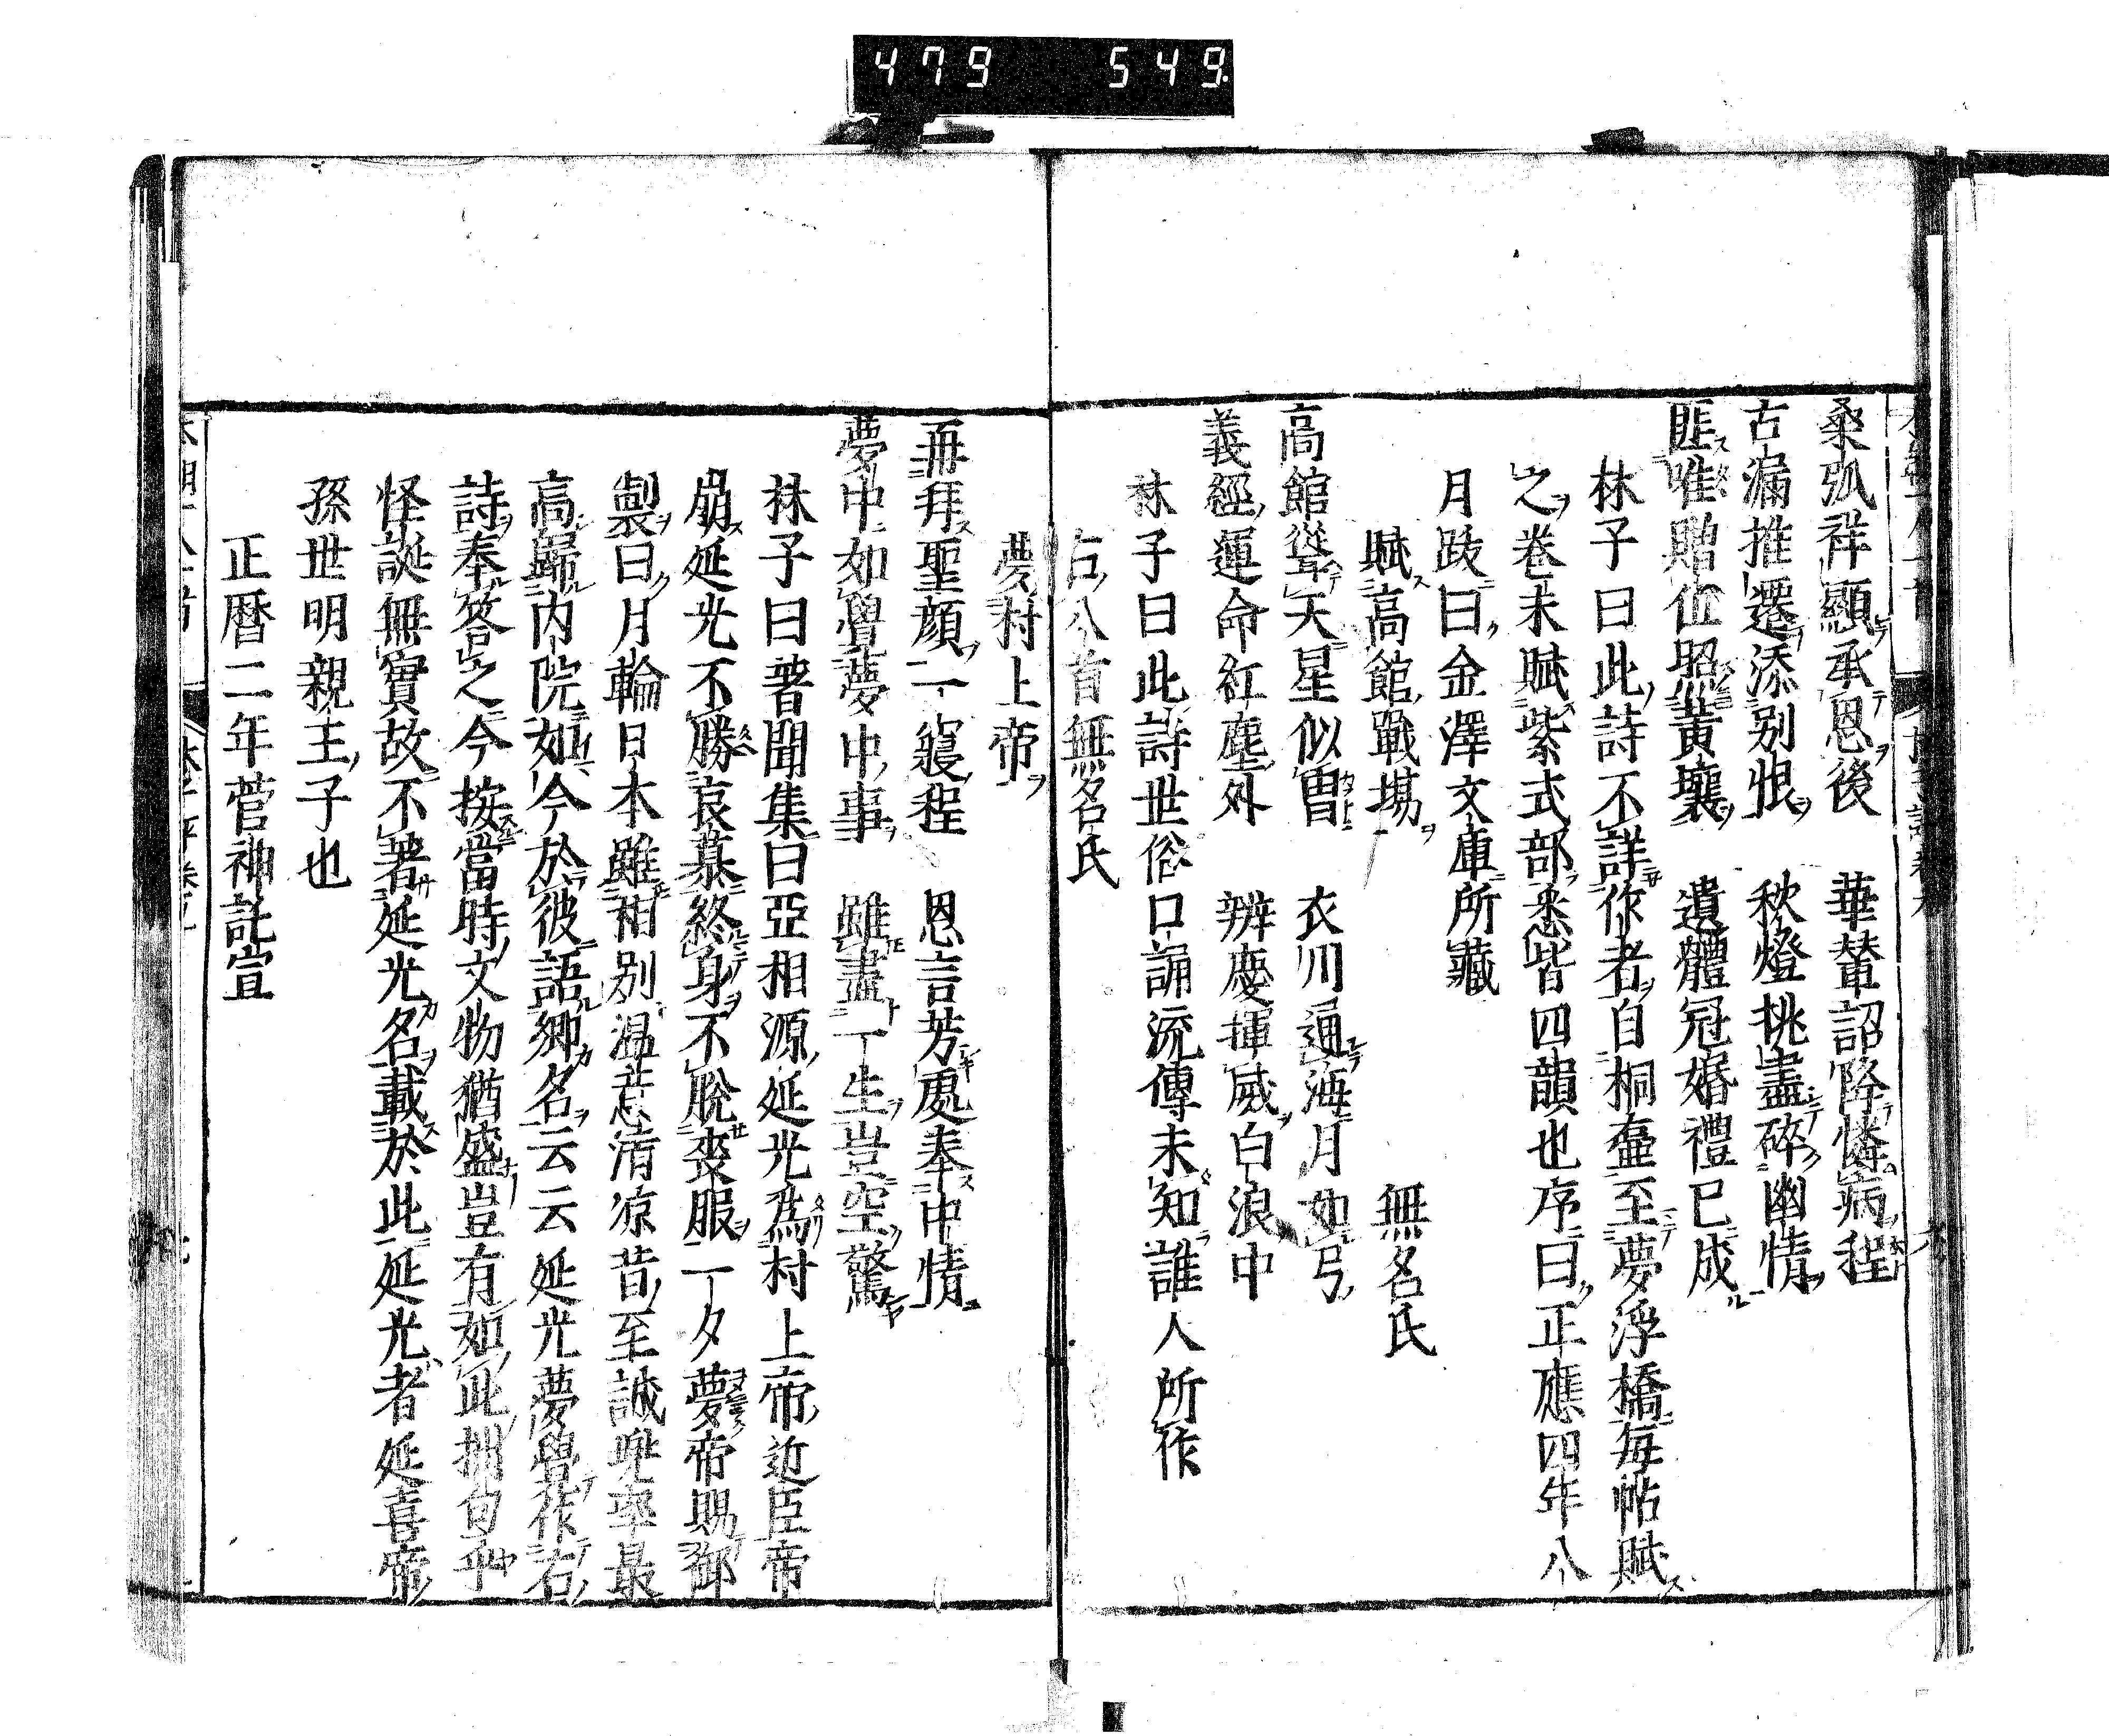 479 549
桑弧祥顯承恩後 華輦詔降憐病程
古漏推遷添別恨 秋燈挑盡碎幽情
匪唯贈位照黃壤 遺體冠婚禮已成
林子曰此詩不詳作者自桐壺至夢浮橋每帖賦
之卷末賦紫式部悉皆四韻也序曰正應四年八
月跋曰金澤文庫所藏
賦高館戰場 無名氏
高館聳天星似冑 衣川通海月如弓
義經運命紅塵外 辨慶揮威白浪中
林子曰此詩世俗口誦流傳未知誰人所作
右八首無名氏
夢村上帝
再拜聖顏一寢程 恩言芳處奉中情
夢中如覺夢中事 雖盡一生豈空驚
林子曰著聞集曰亞相源延光為村上帝近臣帝
崩延光不勝哀慕終身不脫喪服一夕夢帝賜御
製曰月輪日本雖相別溫意清凉昔至誠兜率最
高歸內院如今於彼語卿名云云延光夢覺作右
詩奉答之今按當時文物猶盛豈有如此拙句乎
怪誕無實故不著延光名載於此延光者延喜帝
孫世明親王子也
正曆二年菅神託宣